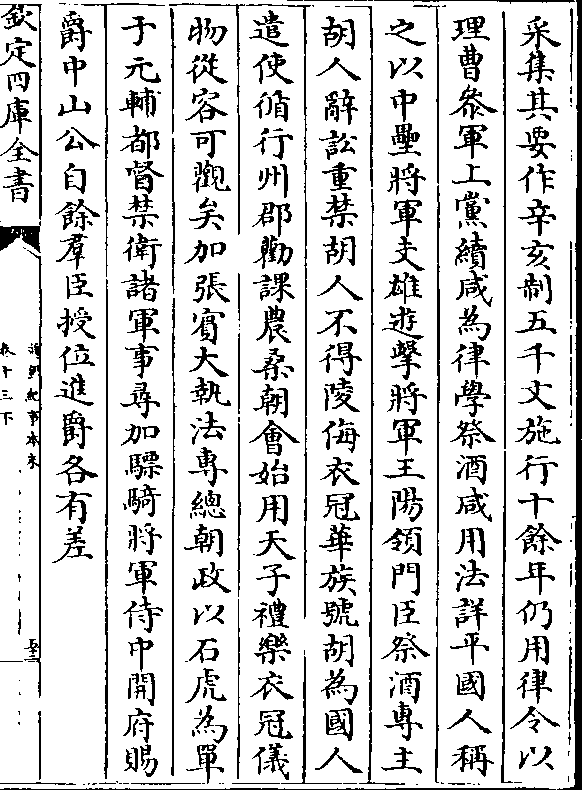 采集其要作辛亥制五千文施行十餘年仍用律令以
理曹叅軍上黨續咸為律學祭酒咸用法詳平國人稱
之以中壘將軍支雄遊擊將軍王陽領門臣祭酒專主
胡人辭訟重禁胡人不得陵侮衣冠華族號胡為國人
遣使循行州郡勸課農桑朝會始用天子禮樂衣冠儀
物從容可觀矣加張賓大執法專總朝政以石虎為單
于元輔都督禁衛諸軍事尋加驃騎將軍侍中開府賜
爵中山公自餘羣臣授位進爵各有差
欽定四庫全書
卷十三下